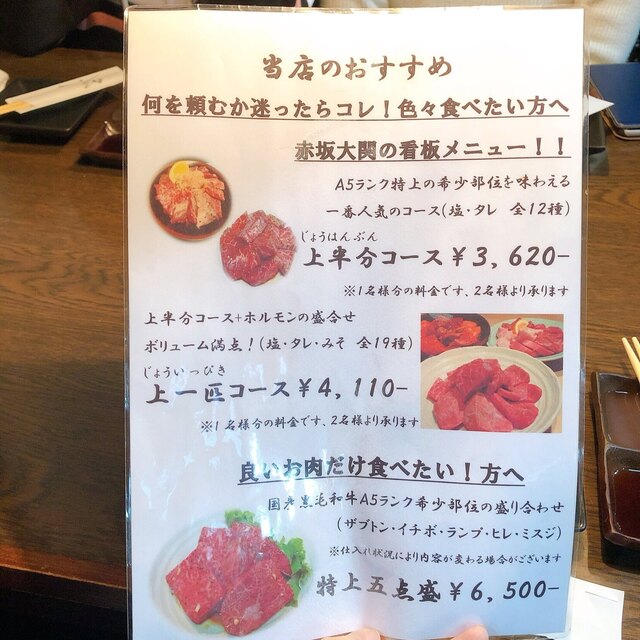 当店のおすすめ
何を頼むか迷ったらコレ！色々食べたい方へ
赤坂大関の看板メニュー！！
A5ランク特上の希少部位を味わえる
一番人気のコース(塩・タレ 全12種)
じょうはんぶん
上半分コース￥3,620-
※1名様分の料金です、2名様より承ります
上半分コース+ホルモンの盛合せ
ボリューム満点！(塩・タレ・みそ 全19種)
じょういっぴき
上一匹コース￥4,110-
※1名様分の料金です、2名様より承ります
良いお肉だけ食べたい！方へ
国産黒毛和牛A5ランク希少部位の盛り合わせ
(ザブトン・イチボ・ランプ・ヒレ・ミスジ)
※仕入れ状況により内容が変わる場合がございます
特上五点盛￥6,500-